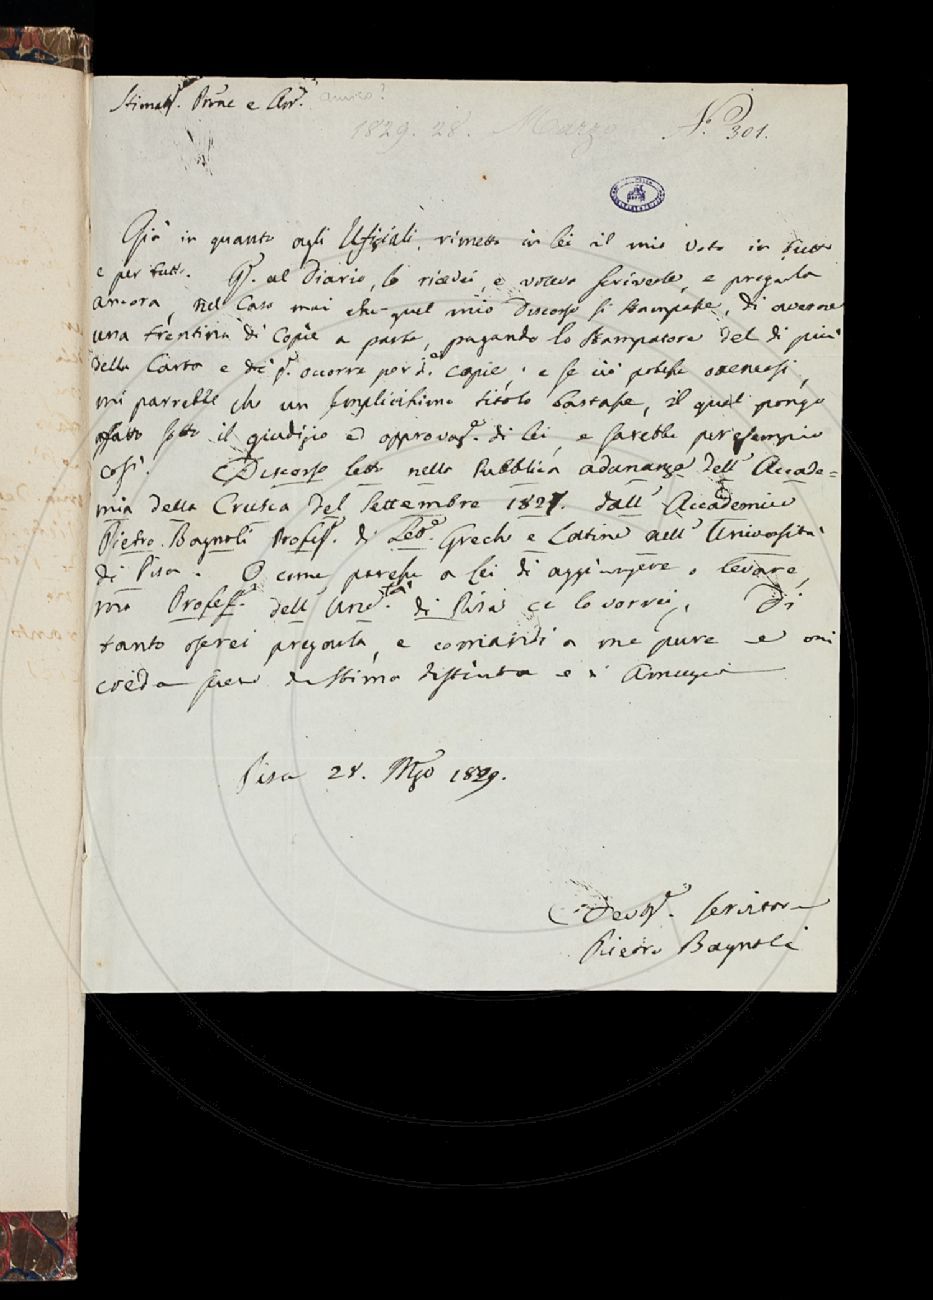 Stimat.º Prne e Am.º amico?
1829. 28. Marzo
N.º 301.
Già in quanto agli Ufiziali, rimetto in lei il mio voto in tutto
e per tutto. Q.º al Diario, lo ricevei, e volevo scriverle, e pregarla
ancora, nel caso mai che quel mio Discorso si stampasse, di averne
una trentina di Copie a parte, pagando lo Stampatore del di piu
della Carta e di p. occorra per d.e copie; e se ciò potesse ottenersi,
mi parrebbe che un semplicissimo titolo bastasse, il qual pongo
affatto sotto il giudizio ed approvaz.e di lei, e sarebbe per esempio
così. Discorso letto nella Pubblica adunanza dell' Accade=
mia della Crusca del Settembre 1827. dall' Accademico
Pietro Bagnoli Profess.e di Lett.e Greche e Latine nell' Università
di Pisa. O come paresse a lei di aggiungere o levare,
ma Profess.e dell' Univ.tà di Pisa ce lo vorrei. Di
tanto oserei pregarla, e comandi a me pure e mi
creda pieno di stima distinta e di amicizia
Pisa 28. Mzo 1829.
Devot.º Servitore
Pietro Bagnoli